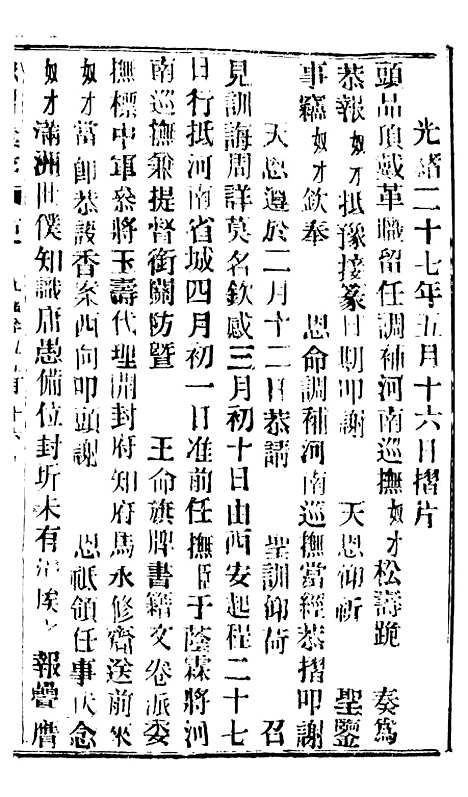 光緒二十七年五月十六日摺片
頭品頂戴革職留任調補河南巡撫奴才松壽跪 奏爲
恭報奴才抵豫接篆日期叩謝 天恩仰祈 聖鑒
事竊奴才欽奉 恩命調補河南巡撫當經恭摺叩謝
天恩遵於二月十二日恭請 聖訓仰荷 召
見訓誨周詳莫名欽感三月初十日由西安起程二十七
日行抵河南省城四月初一日准前任撫臣于蔭霖將河
南巡撫兼提督銜關防暨 王命旗牌書籍文卷派委
撫標中軍叅將玉壽代理開封府知府馬永修齎送前來
奴才當卽恭設香案西向叩頭謝 恩祗領任事伏念
奴才滿洲世僕知識庸愚備位封圻未有涓埃 報疊膺